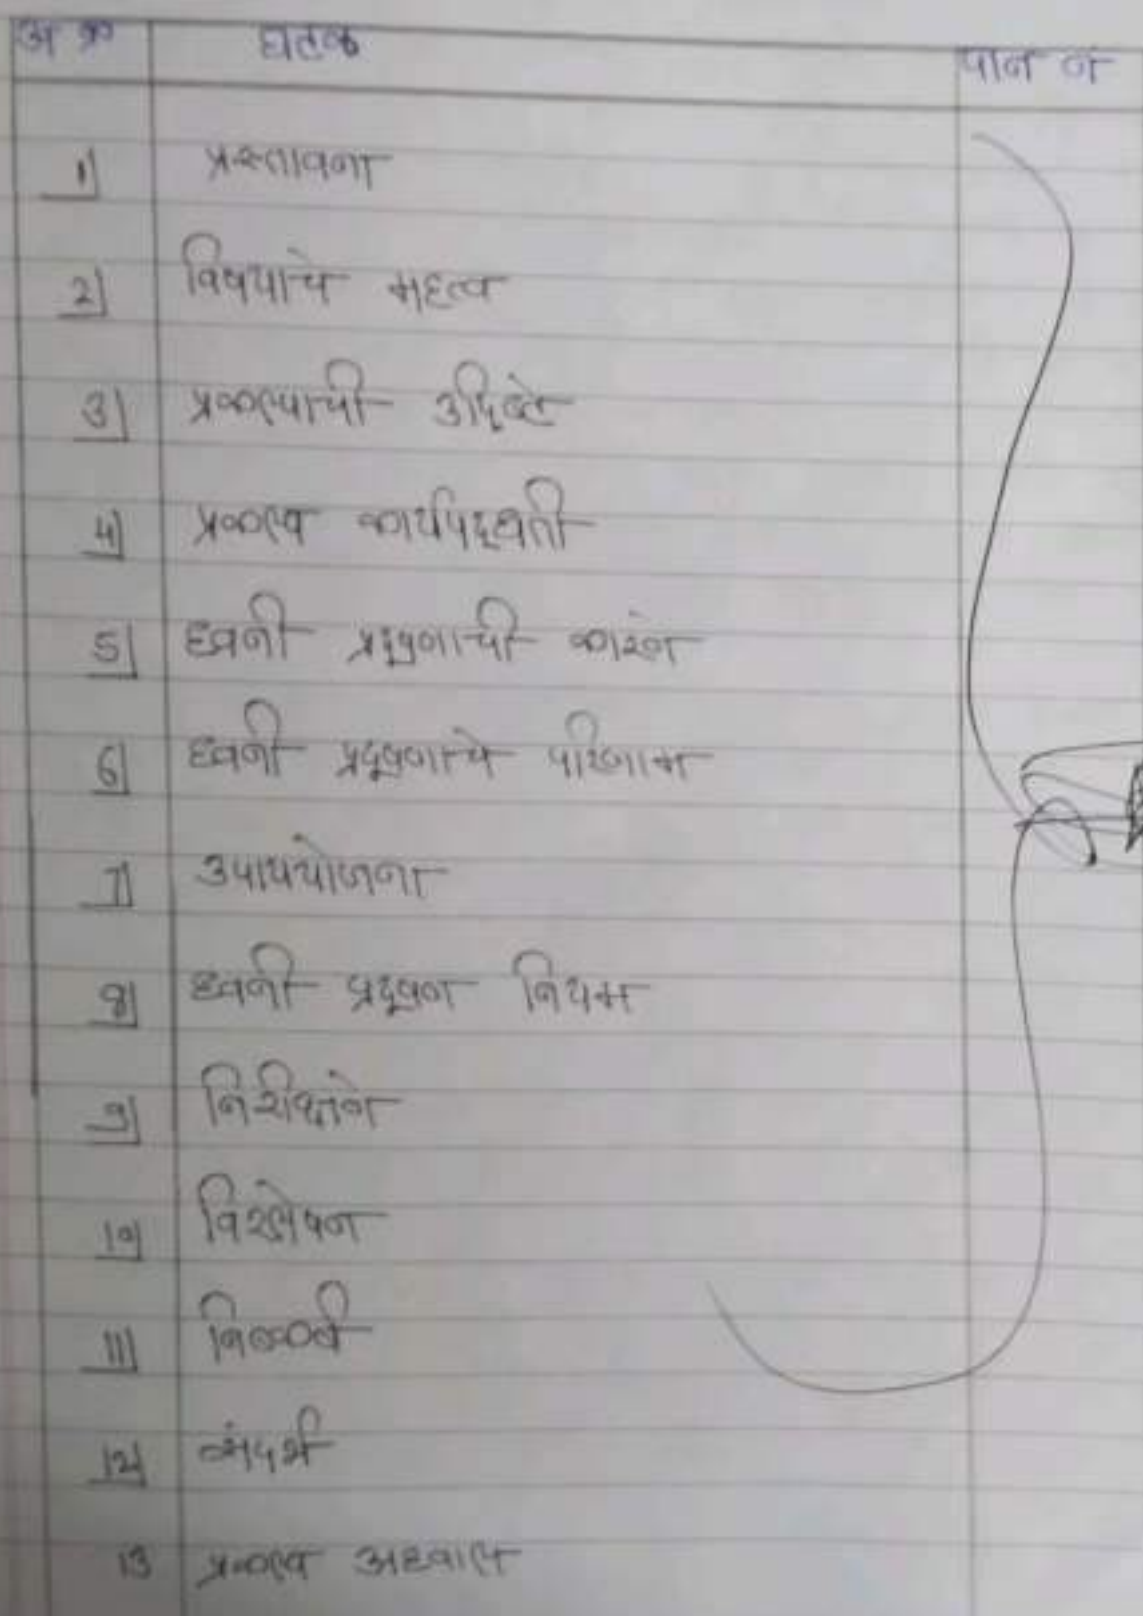 अ क्र घटक पान नं
1) प्रस्तावना
2) विषयाचे महत्व
3) प्रकल्पाची उद्दिष्टे
4) प्रकल्प कार्यपद्धती
5) ध्वनी प्रदूषणाची कारणे
6) ध्वनी प्रदूषणाचे परिणाम
7) उपाययोजना
8) ध्वनी प्रदूषण नियम
9) निरीक्षणे
10) विश्लेषन
11) निष्कर्ष
12) संदर्भ
13 प्रकल्प अहवाल